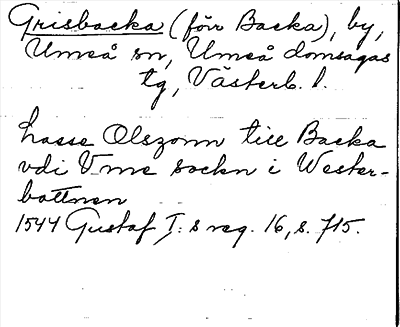 Grisbacka (förr Backa), by,
Umeå sn, Umeå domsagas
tg, Västerb. l.
Lasse Olszonn till Backa
vdi Vme sockn i Wester-
bottnen
1544 Gustaf I:s reg. 16, s. 715.